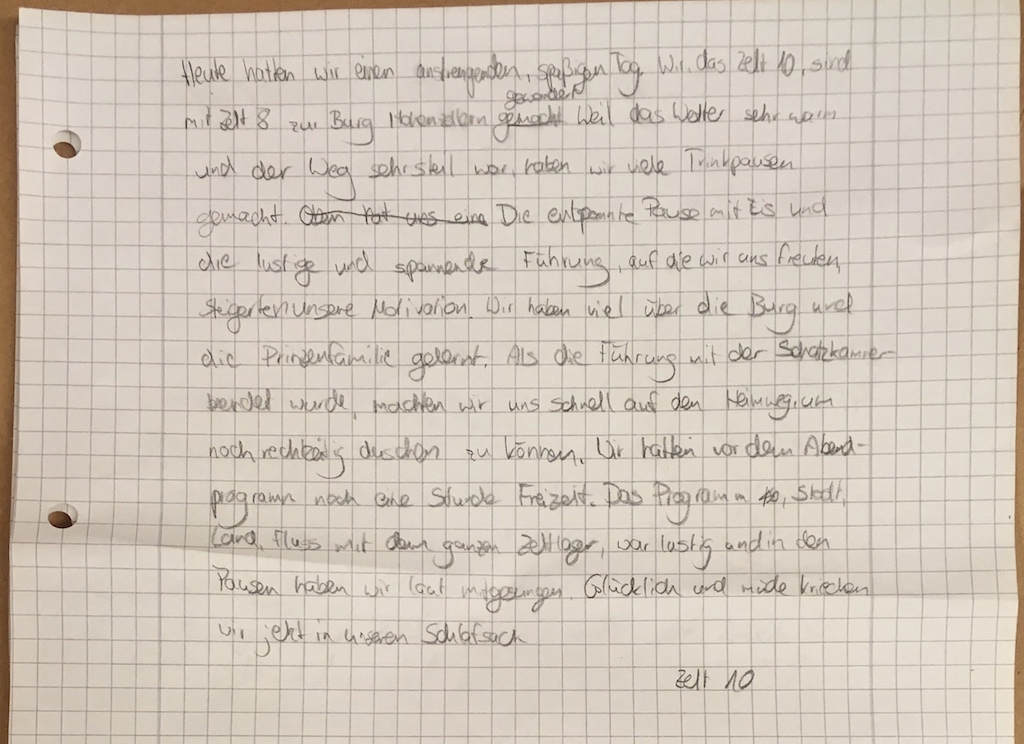 Heute hatten wir einen anstrengenden, spaßigen Tag. Wir, das Zelt 10, sind
gewandert
mit Zelt 8 zur Burg Hohenzollern gemacht Weil das Wetter sehr warm
und der Weg sehr steil war, haben wir viele Trinkpausen
gemacht. Oben hat uns eine Die entspannte Pause mit Eis und
die lustige und spannende Führung, auf die wir uns freuten,
steigerten unsere Motivation. Wir haben viel über die Burg und
die Prinzenfamilie gelernt. Als die Führung mit der Schatzkammer
beendet wurde, machten wir uns schnell auf den Heimweg, um
noch rechtzeitig duschen zu können. Wir hatten vor dem Abend-
programm noch eine Stunde Freizeit. Das Programm, Stadt,
Land, Fluss mit dem ganzen Zeltlager, war lustig und in den
Pausen haben wir laut mitgesungen. Glücklich und müde kriechen
wir jetzt in unseren Schlafsack
Zelt 10